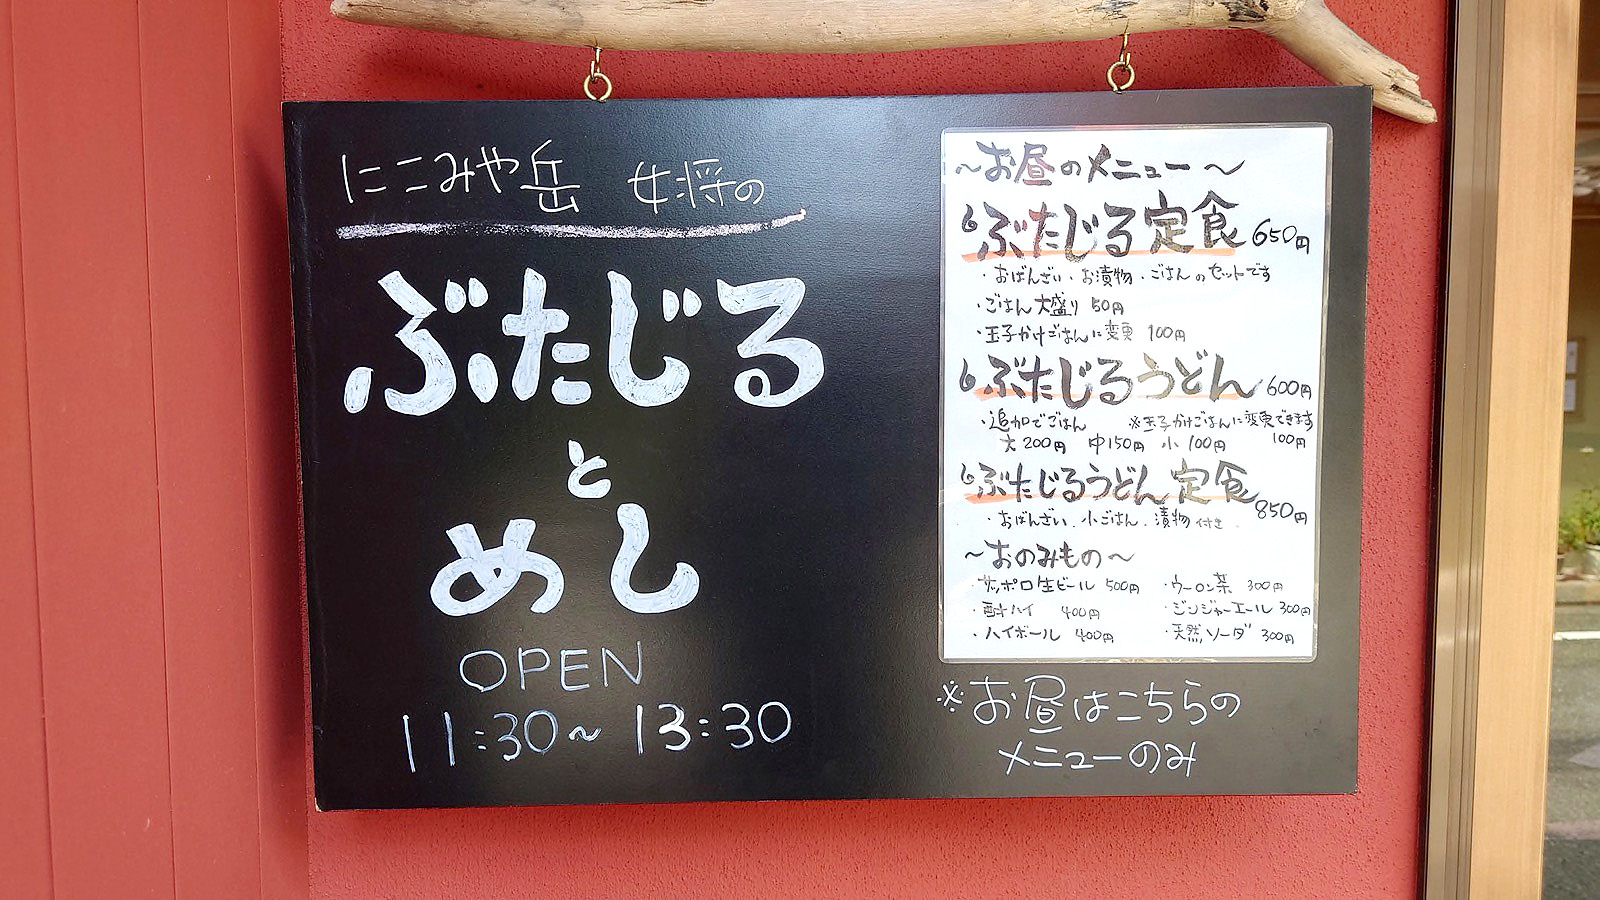 にこみや岳 女将の
ぶたじる
と
めし
OPEN
11:30~13:30
~お昼のメニュー~
ぶたじる定食 650円
・おばんざい・お漬物・ごはんのセットです
・ごはん大盛り 50円
・玉子かけごはんに変更 100円
ぶたじるうどん 600円
・追加でごはん ※玉子かけごはんに変更できます
大200円 中150円 小100円 100円
ぶたじるうどん定食 850円
・おばんざい、小ごはん、漬物付き
~おのみもの~
・サッポロ生ビール 500円 ・ウーロン茶 300円
・酎ハイ 400円 ・ジンジャーエール 300円
・ハイボール 400円 ・天然ソーダ 300円
※お昼はこちらの
メニューのみ